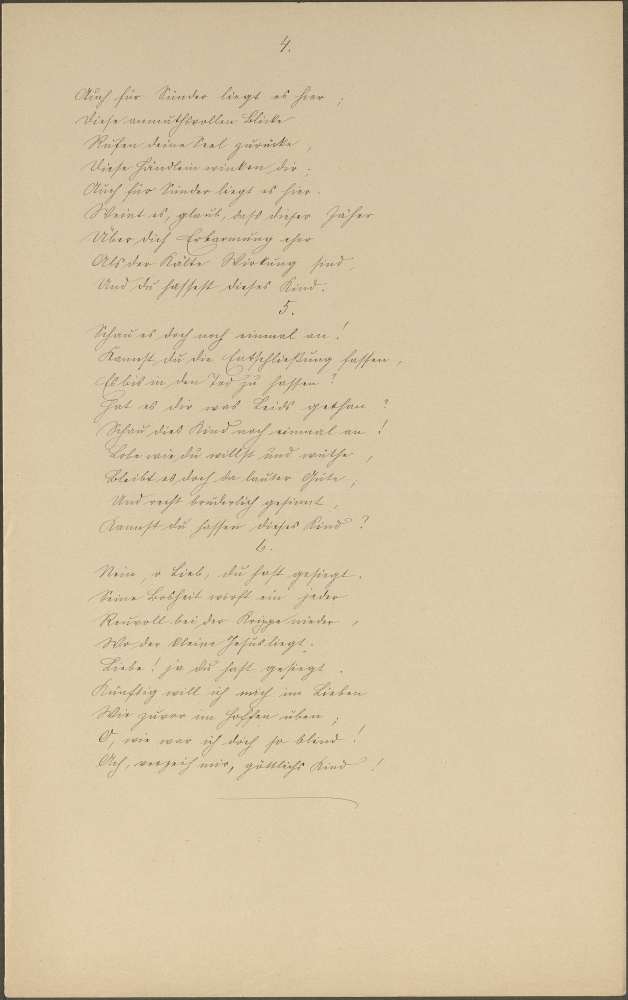 4.
Auch für Sünder liegt es hier;
Diese anmuthsvollen Blicke
Rufen deine Seel zurücke,
Diese Händlein winken dir;
Auch für Sünder liegt es hier.
Weint es, glaub, daß dieser Zäher
Über dich Erbarmung eher
Als der Kälte Wirkung sind,
Und du hassest dieses Kind.
5.
Schau es doch noch einmal an!
Kannst du die Entschließung fassen,
Es bis in den Tod zu hassen?
Hat es dir was Leids gethan?
Schau dies Kind noch einmal an!
Tobe wie du willst und wüthe,
Bleibt es doch da lauter Güte,
Und recht brüderlich gesinnt,
Kannst du hassen dieses Kind?
6.
Nein, o Lieb, du hast gesiegt.
Seine Bosheit werft ein jeder
Reuvoll bei der Krippe nieder,
Wo der kleine Jesus liegt.
Liebe! ja du hast gesiegt.
Künftig will ich mich im Lieben
Wie zuvor im Hassen üben;
O, wie war ich doch so blind!
Ach, verzeih mir, göttlichs Kind!